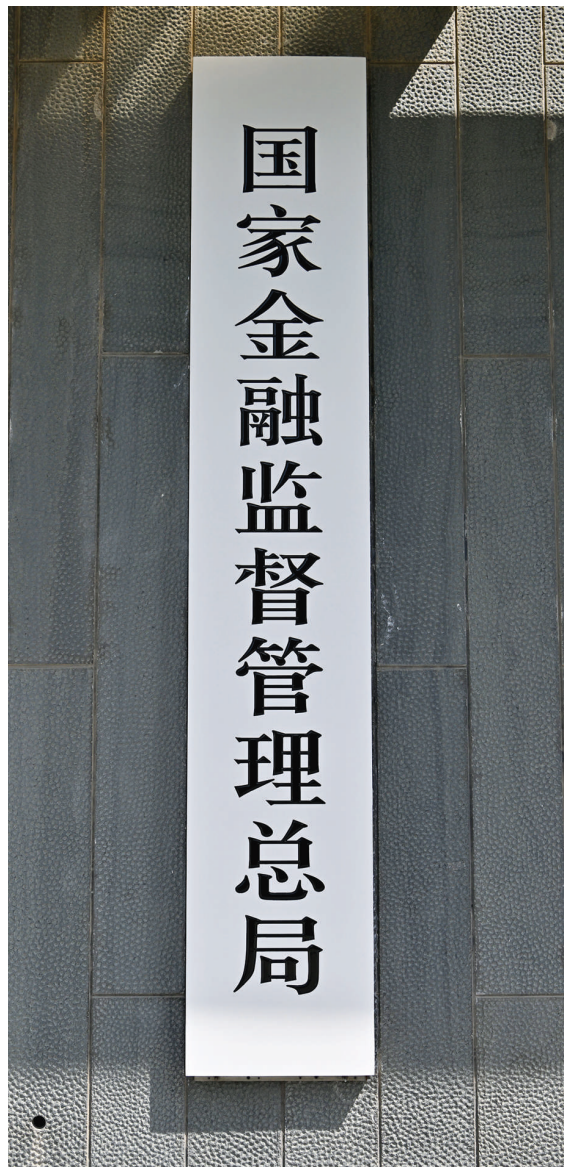 国家金融监督管理总局